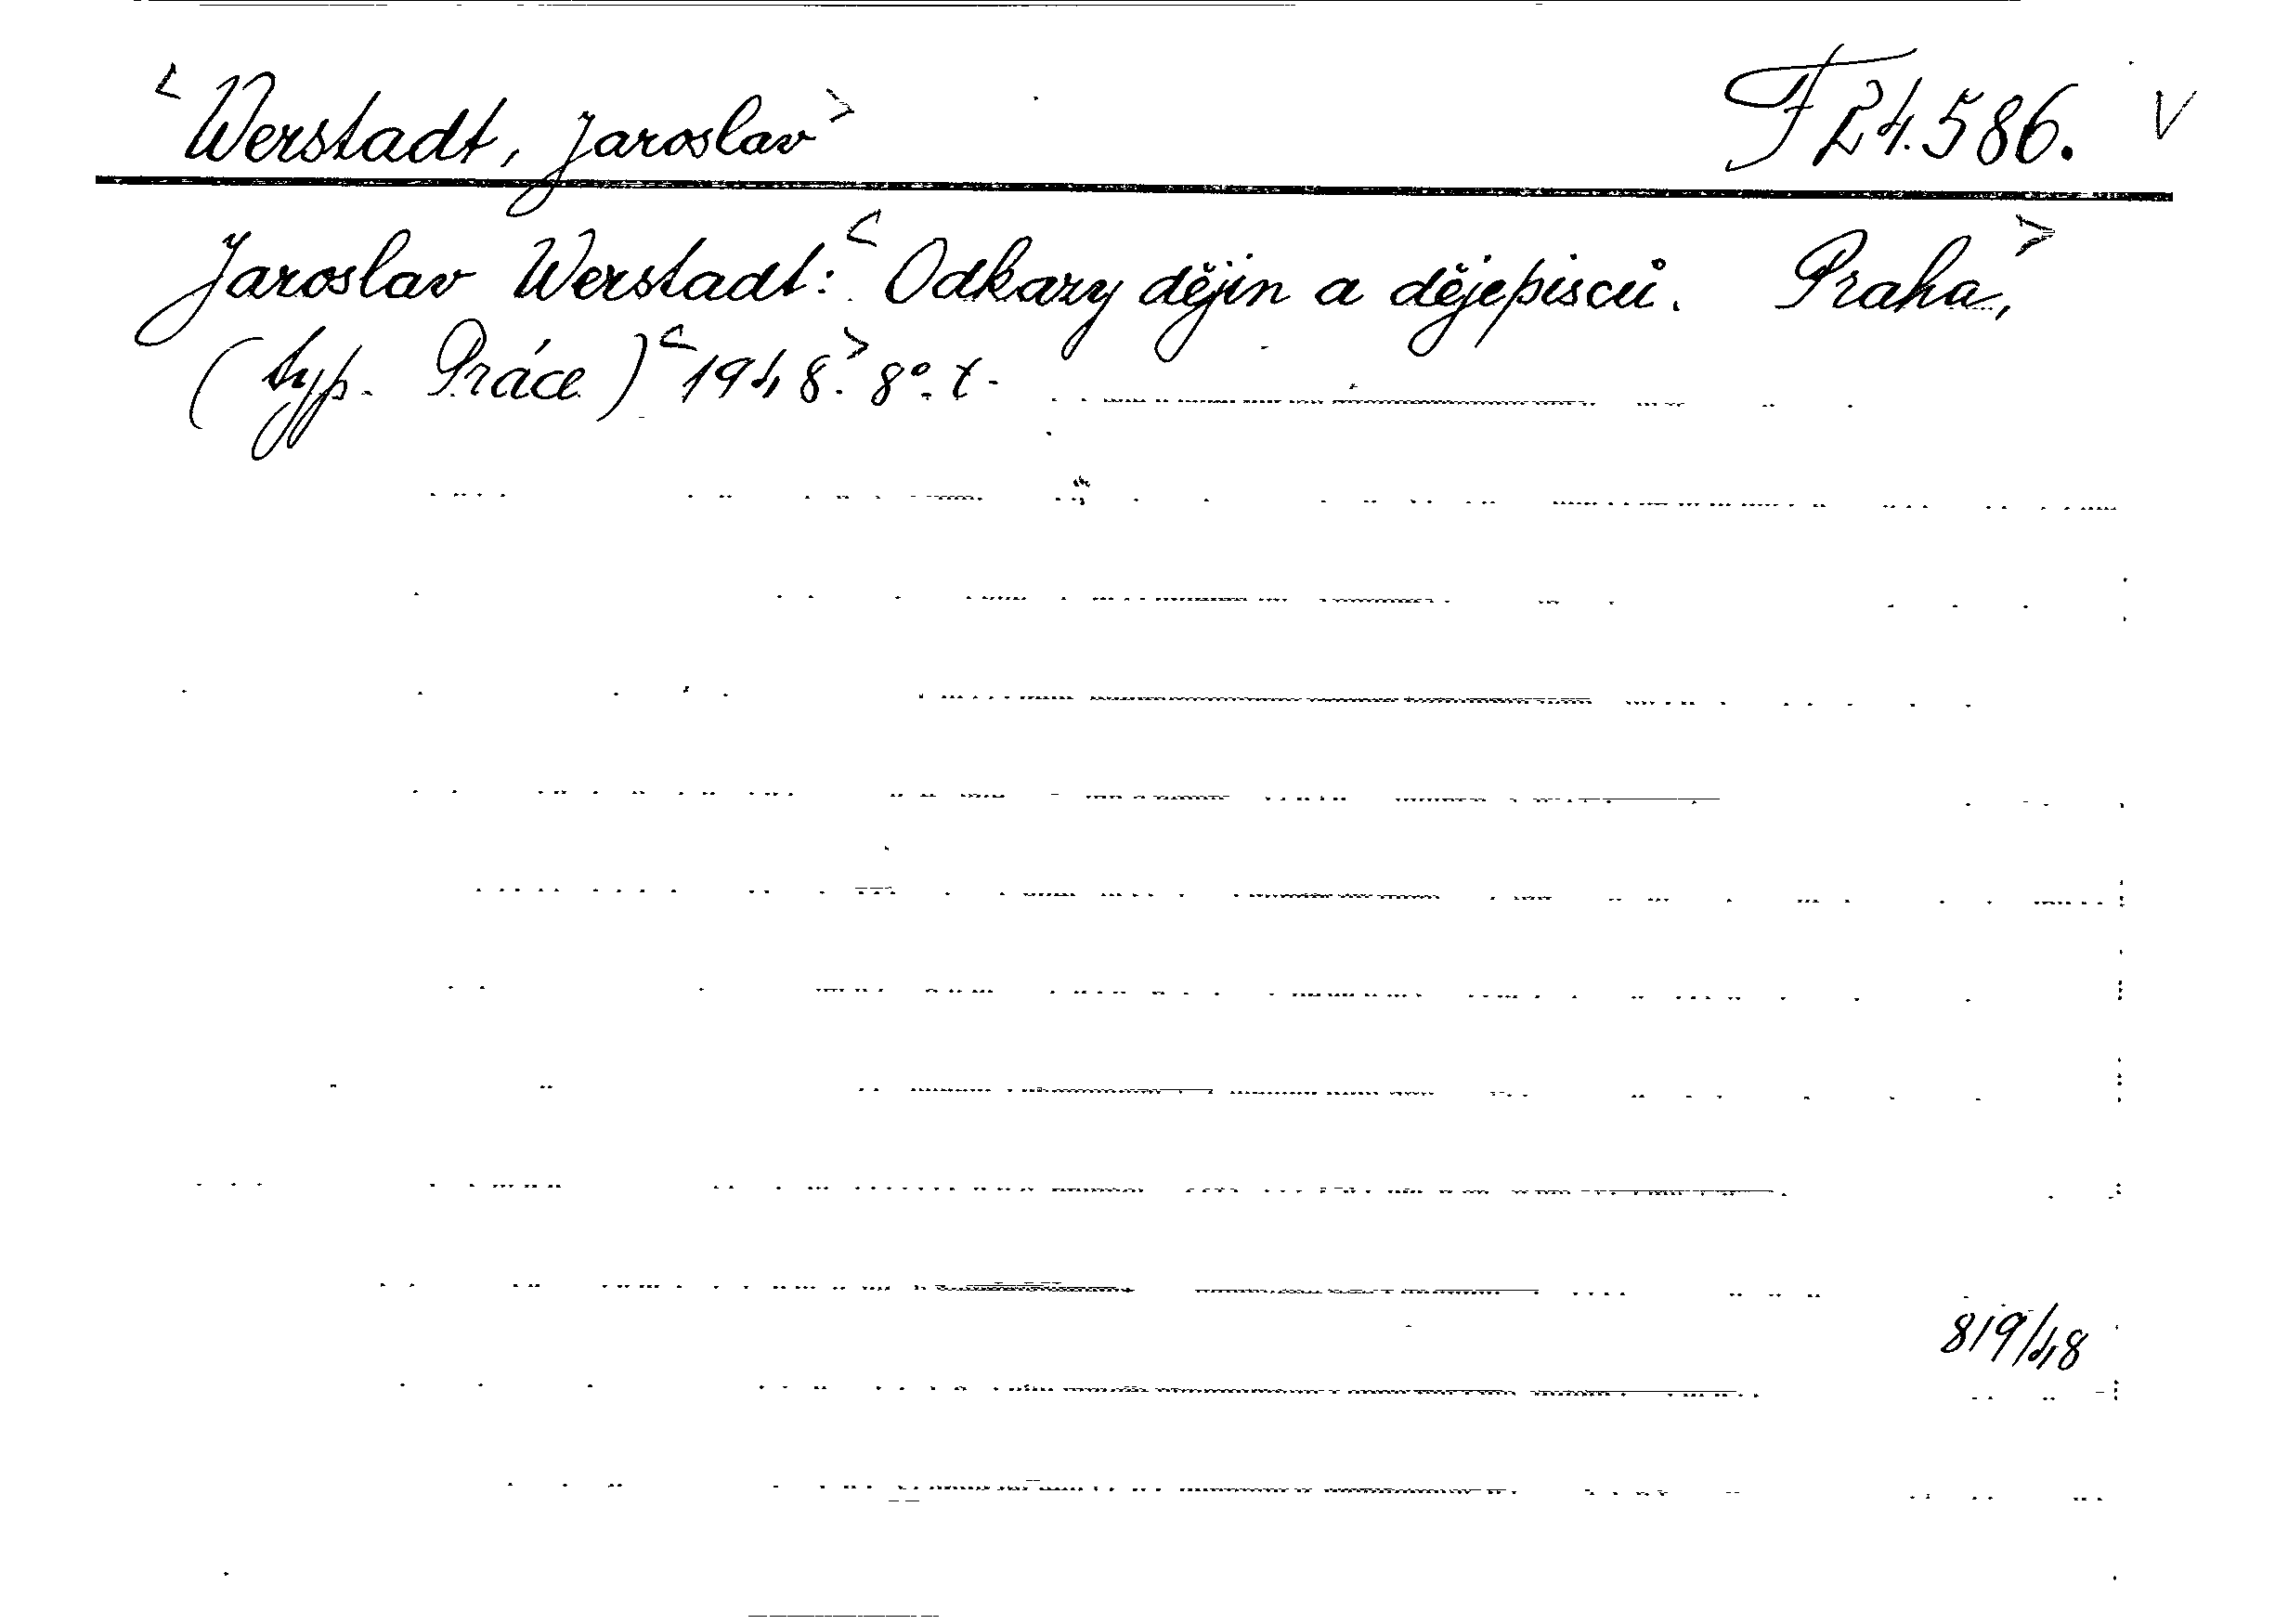 <Werstadt, Jaroslav> F 24.586. V
Jaroslav Werstadt: <Odkazy dějin a dějepisců. Praha,>
(typ. Práce) <1948.> 8°. t.
819/48